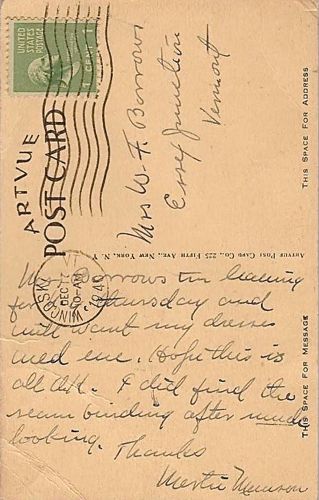 UNITED STATES
POSTAGE
1 CENT 1
ARTVUE
POST CARD
WINOOSKI
DEC 17
10-AM
1940
Mrs W. F. Borrows
Essex Junction
Vermont
THIS SPACE FOR ADDRESS
ARTVUE POST CARD CO., 225 FIFTH AVE., NEW YORK, N. Y.
Mrs Borrows Im leaving
for Thursday and
will want my dresses
wed eve. Hope this is
all OK. I did find the
seam binding after much
looking. Thanks
THIS SPACE FOR MESSAGE